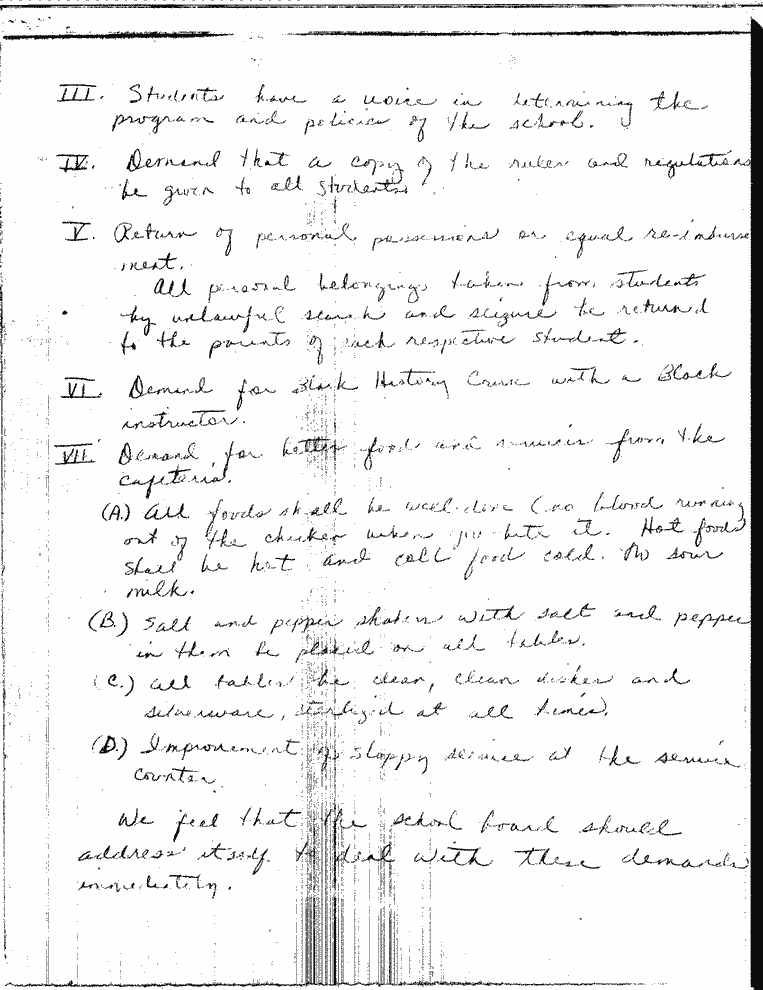 III. Students have a voice in determining the
program and policies of the school.
IV. Demand that a copy of the rules and regulations
be given to all students.
V. Return of personal possessions or equal re-imburse
ment.
All personal belongings taken from students
by unlawful search and seizure be returned
to the parents of each respective student.
VI. Demand for Black History Course with a Black
instructor.
VII. Demand for better food and services from the
cafeteria.
(A.) All foods shall be well-done (no blood running
out of the chicken when you bite it. Hot foods
shall be hot and cold food cold. No sour
milk.
(B.) Salt and pepper shakers with salt and pepper
in them be placed on all tables.
(C.) All tables be clean, clean dishes and
silverware, sterilized at all times.
(D.) Improvement of sloppy service at the service
counter.
We feel that the school board should
address itself to deal with these demands
immediately.